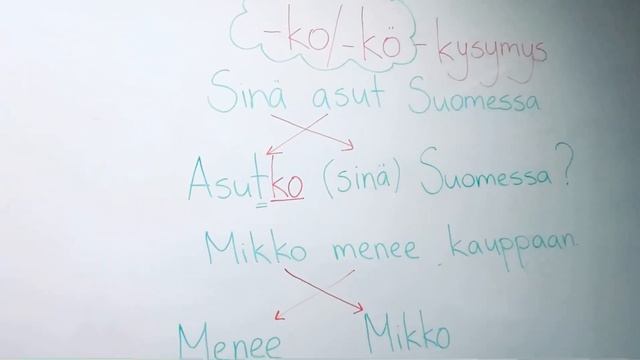 -ko/-kö-kysymys
Sinä asut Suomessa
Asutko (sinä) Suomessa?
Mikko menee kauppaan
Menee Mikko